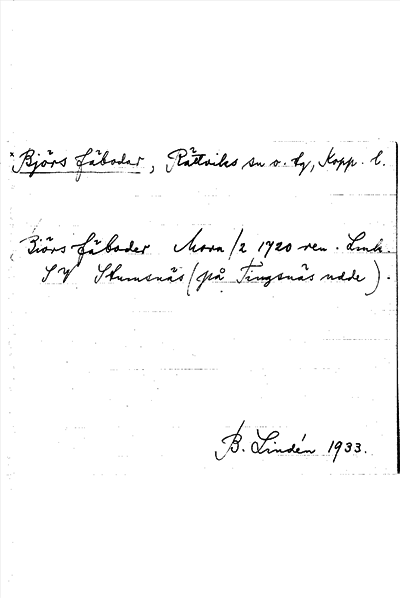 * Björs fäbodar, Rättviks sn o. tg, Kopp. l.
Biörs fäboder Mora/2 1720 ren. Lmk.
SV Stumsnäs (på Tingsnäs udde).
B. Lindén 1933.